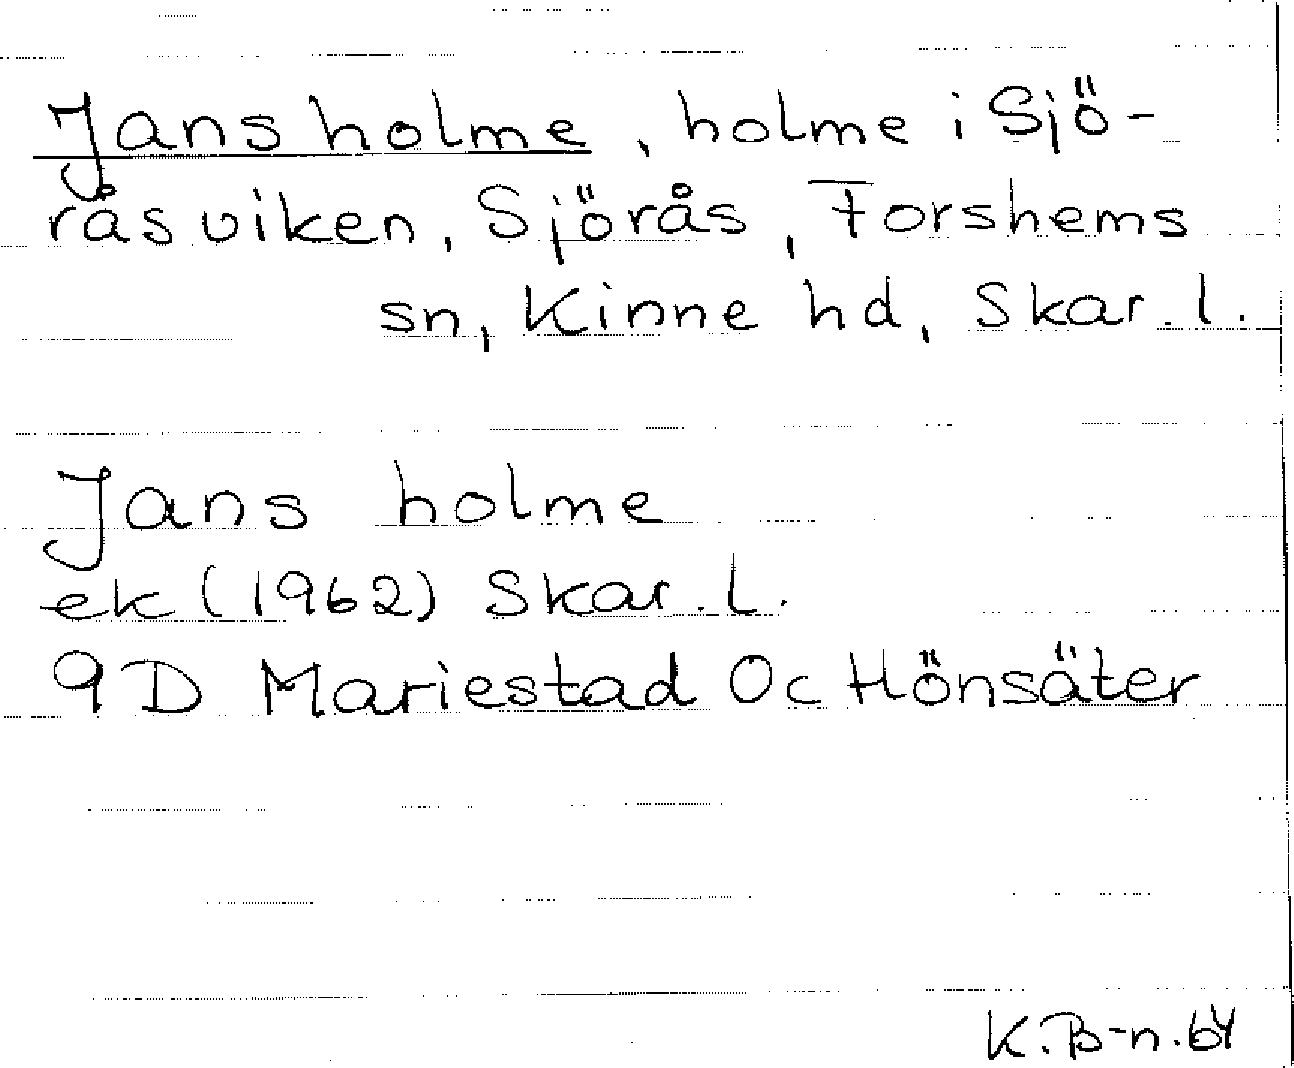 Jansholme, holme i Sjö-
råsviken, Sjörås, Forshems
sn, Kinne hd, Skar. l.
Jans holme
ek (1962) Skar. l.
9D Mariestad Oc Hönsäter
K. B-n. 64